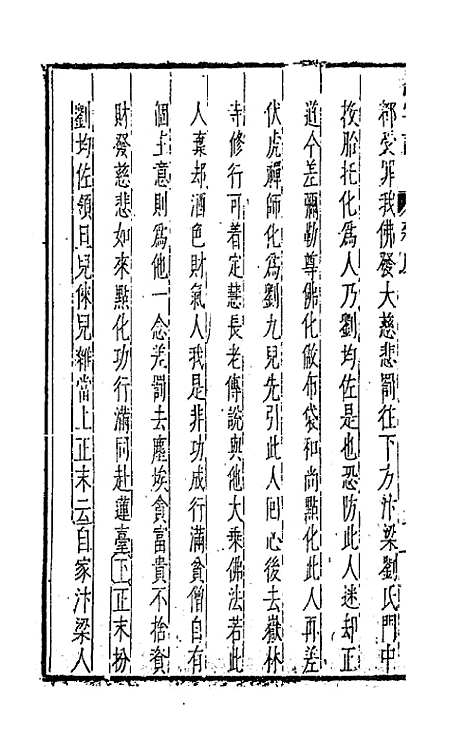 都受罪我佛發大慈悲罰往下方汴梁劉氏門中
投胎托化爲人乃劉均佐是也恐防此人迷却正
道今差彌勒尊佛化做布袋和尚點化此人再差
伏虎禪師化爲劉九兒先引此人回心後去嶽林
寺修行可着定慧長老傳說與他大乗佛法若此
人棄却酒色財氣人我是非功成行滿貧僧自有
個主意則爲他一念差罰去塵埃貪富貴不捨資
財發慈悲如來點化功行滿同赴蓮臺下正末扮
劉均佐領旦兒倈兒雜當上正末云自家汴梁人